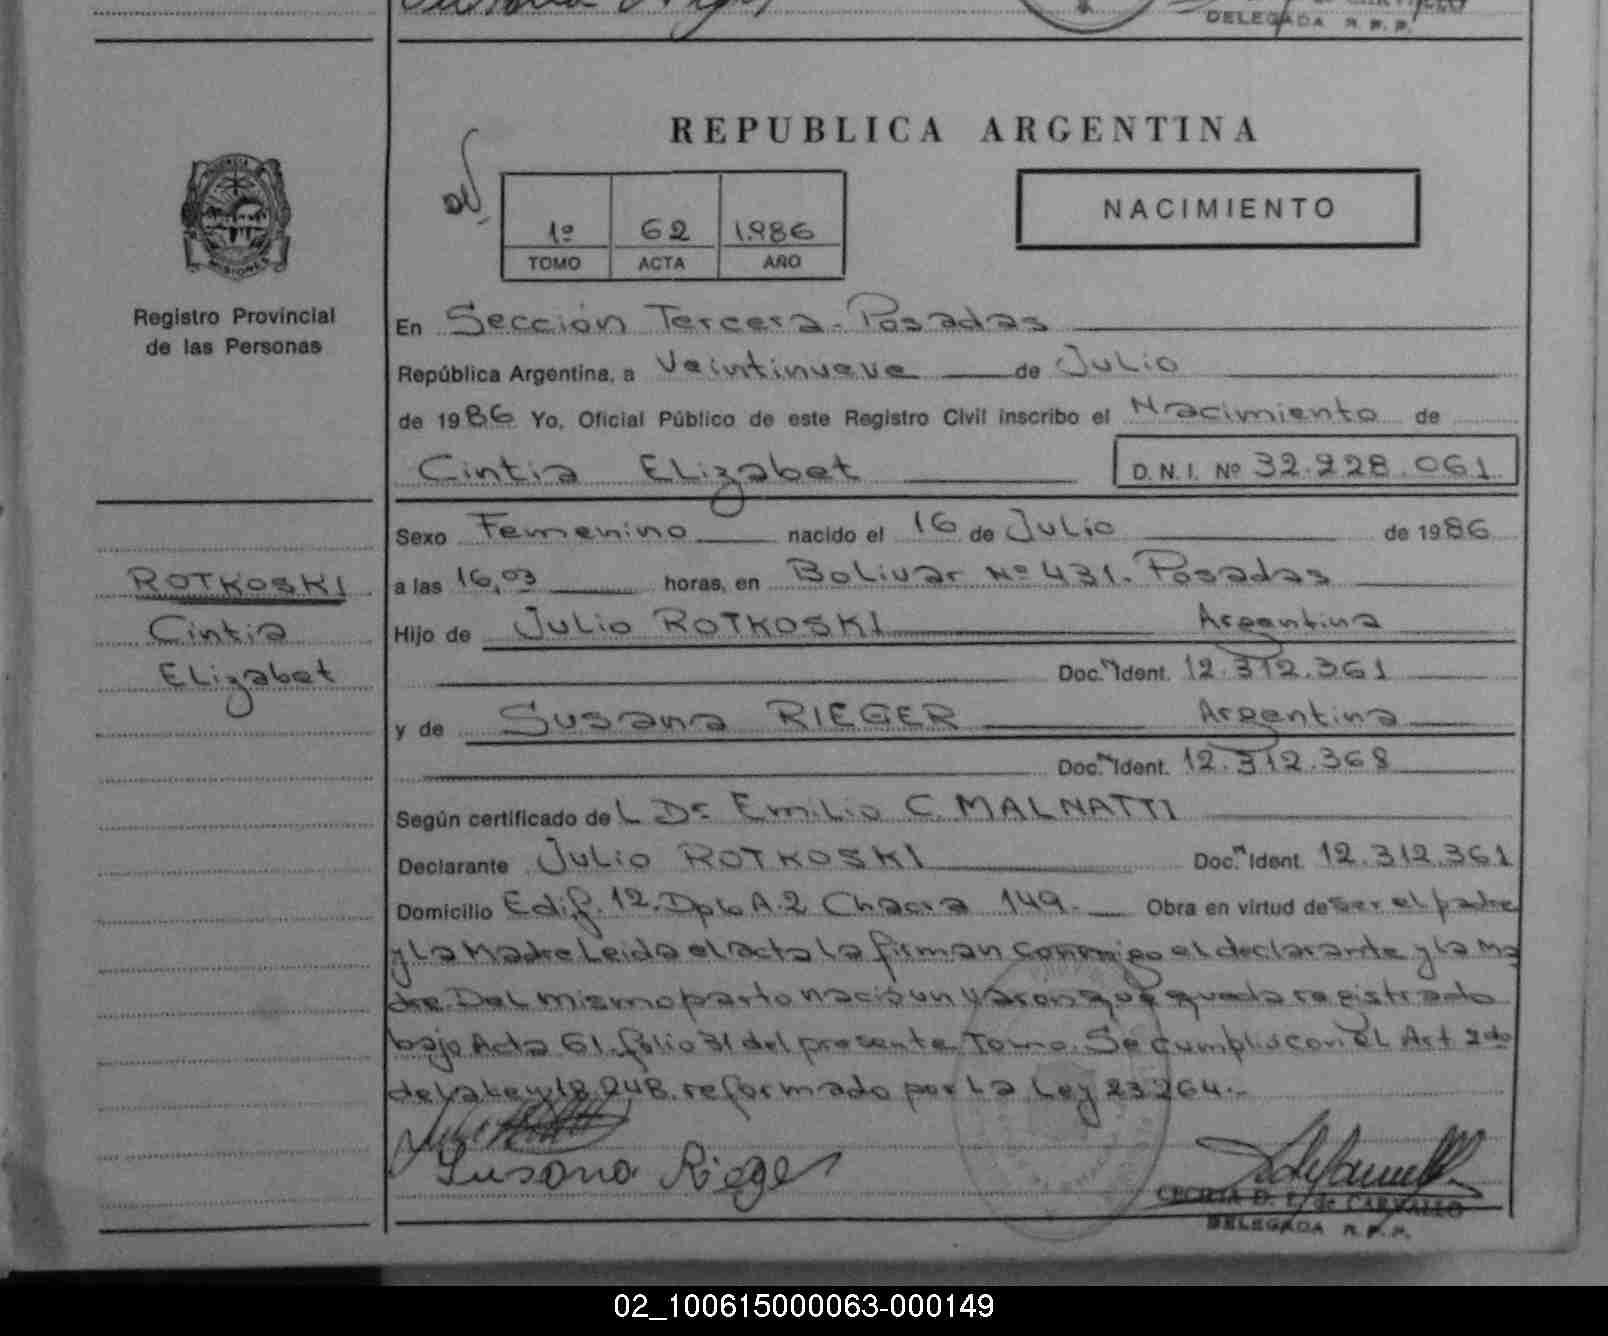 DELEGADA R.P.P.
REPUBLICA ARGENTINA
1º 62 1986
TOMO ACTA AÑO
NACIMIENTO
MISIONES
Registro Provincial
de las Personas
En Sección Tercera - Posadas
República Argentina, a Veintinueve de Julio
de 1986 Yo, Oficial Público de este Registro Civil inscribo el Nacimiento de
Cintia ELizabet D.N.I. Nº 32.228.061
Sexo Femenino nacido el 16 de Julio de 1986
a las 16,03 horas, en Bolivar Nº 431. Posadas
ROTKOSKI
Cintia
ELizabet
Hijo de Julio ROTKOSKI Argentina
Doc. Ident. 12.312.361
y de Susana RIEGER Argentina
Doc. Ident. 12.312.368
Según certificado deL Dr Emilio C. MALNATTI
Declarante Julio ROTKOSKI Doc. Ident. 12.312.361
Domicilio Edif. 12. Dpto A.2 Chacra 149. Obra en virtud de ser el padre
y La Madre Leida el acta la firman conmigo el declarante y la Ma
dre. Del mismo parto nació un Varón que queda registrado
bajo Acta 61. folio 31 del presente Tomo. Se cumplió con el Art 2do
de la Ley 18.248. reformado por La Ley 23264.-
Susana Rieger
CECILIA D. L. de CARVALLO
DELEGADA R.P.P.
02_100615000063-000149